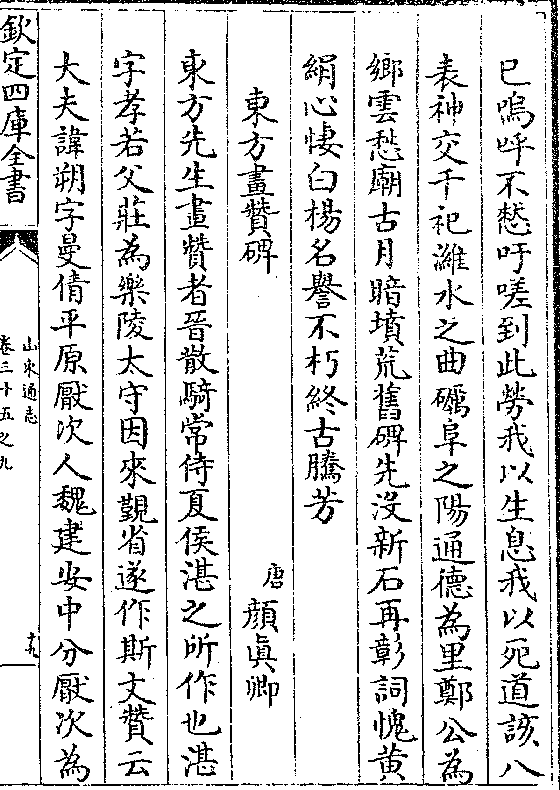 已嗚呼不憖吁嗟到此勞我以生息我以死道該八
表神交千祀濰水之曲礪阜之陽通德為里鄭公為
鄉雲愁廟古月暗墳荒舊碑先沒新石再彰詞愧黄
絹心悽白楊名譽不朽終古騰芳
東方畫贊碑
唐顔真卿
東方先生畫贊者晉散騎常侍夏侯湛之所作也湛
字孝若父莊為樂陵太守因來覲省遂作斯文贊云
大夫諱朔字曼倩平原厭次人魏建安中分厭次為
欽定四庫全書
山東通志
卷三十五之九
十九